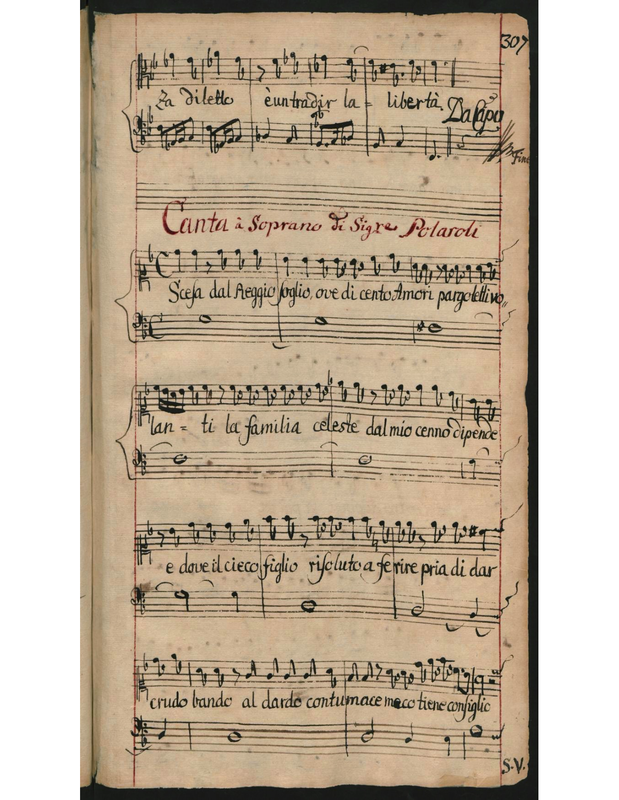 307
Za diletto è un tradir la = libertà Da Capo
Fine
Canta à Soprano di Sigre Polaroli
Scesa dal Reggio soglio, ove di cento Amori pargoletti vo„
lan = ti la familia celeste dal mio cenno dipende
e dove il cieco figlio risoluto a ferire pria di dar
crudo bando al dardo contumace meco tiene consiglio
S. V.